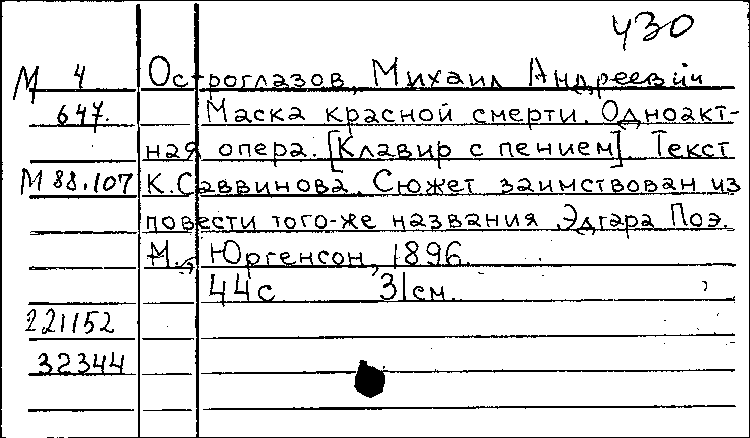 430
М 4 Остроглазов, Михаил Андреевич
647. Маска красной смерти. Одноакт-
ная опера. [Клавир с пением]. Текст
М 88.107 К. Саввинова. Сюжет заимствован из
повести того-же названия Эдгара Поэ.
М., Юргенсон, 1896.
44 с 31 см.
221152
32344